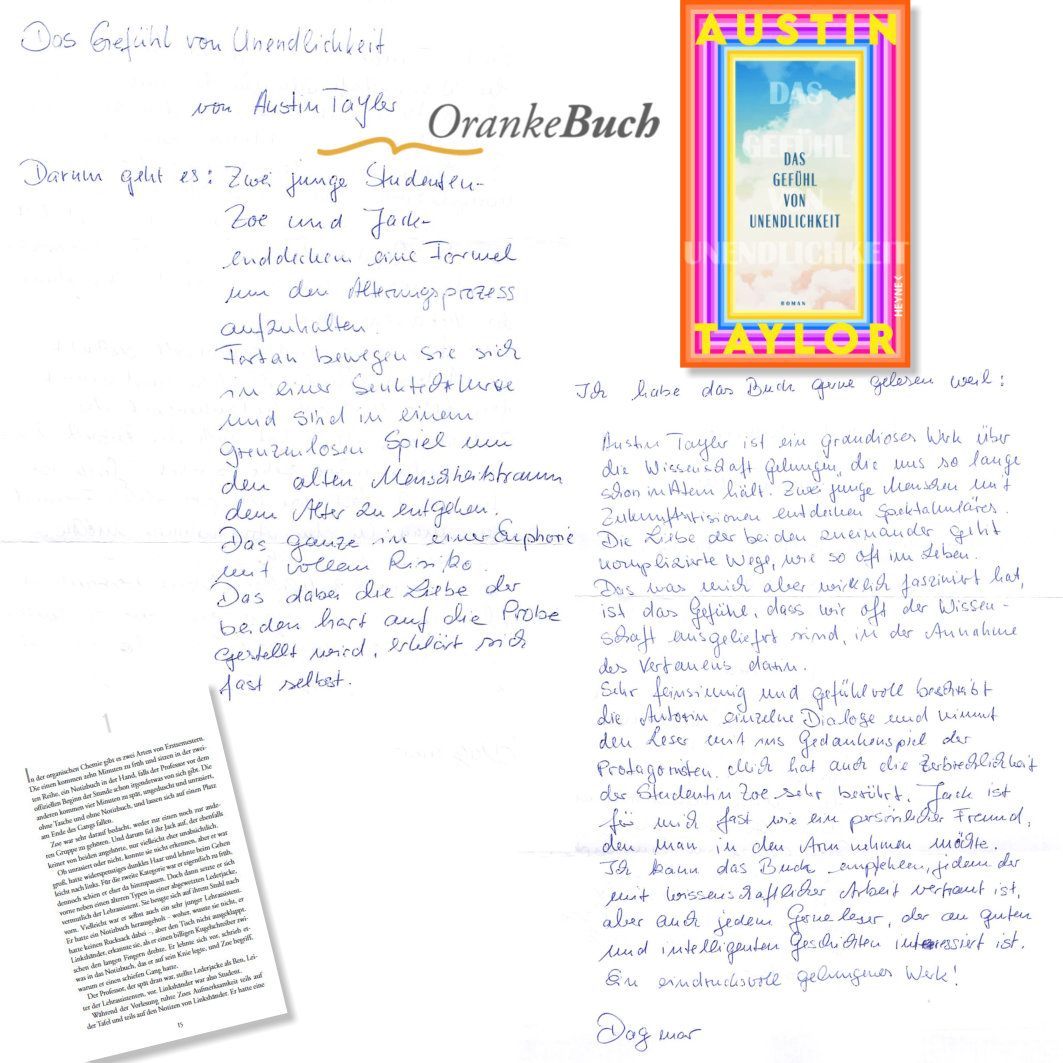 Das Gefühl von Unendlichkeit
von Austin Tayler
OrankeBuch
AUSTIN
DAS
GEFÜHL
VON
UNENDLICHKEIT
DAS
GEFÜHL
VON
UNENDLICHKEIT
ROMAN
HEYNE<
TAYLOR
Darum geht es: Zwei junge Studenten-
Zoe und Jack-
entdecken eine Formel
um den Alterungsprozess
aufzuhalten.
Fortan bewegen sie sich
in einer
und sind in einem
grenzenlosen Spiel um
den alten Menschheitstraum
dem Alter zu entgehen.
Das ganze in einer Euphorie
mit vollem Risiko.
Das dabei die Liebe der
beiden hart auf die Probe
gestellt wird, erklärt sich
fast selbst.
Ich habe das Buch gerne gelesen weil:
Austin Tayler ist ein grandioses Werk über
die Wissenschaft gelungen, die uns so lange
schon in Atem hält. Zwei junge Menschen mit
Zukunftsvisionen entdecken Spektakuläres.
Die Liebe der beiden zueinander geht
komplizierte Wege, wie so oft im Leben.
Das was mich aber wirklich fasziniert hat,
ist das Gefühl, dass wir oft der Wissen-
schaft ausgeliefert sind, in der Annahme
des Vertrauens darin.
Sehr feinsinnig und gefühlvoll beschreibt
die Autorin einzelne Dialoge und nimmt
den Leser mit ins Gedankenspiel der
Protagonisten. Mich hat auch die Zerbrechlichkeit
der Studentin Zoe sehr berührt. Jack ist
für mich fast wie ein persönlicher Freund,
den man in den Arm nehmen möchte.
Ich kann das Buch empfehlen, jedem der
mit wissenschaftlicher Arbeit vertraut ist,
aber auch jedem Gerneleser, der an guten
und intelligenten Geschichten interessiert ist.
Ein eindrucksvoll gelungenes Werk!
Dagmar
1
In der organischen Chemie gibt es zwei Arten von Erstsemestern.
Die einen kommen zehn Minuten zu früh und sitzen in der zwei-
ten Reihe, ein Notizbuch in der Hand, falls der Professor vor dem
offiziellen Beginn der Stunde schon irgendetwas von sich gibt. Die
anderen kommen vier Minuten zu spät, ungeduscht und unrasiert,
ohne Tasche und ohne Notizbuch, und lassen sich auf einen Platz
am Ende des Gangs fallen.
Zoe war sehr darauf bedacht, weder zur einen noch zur ande-
ren Gruppe zu gehören. Und darum fiel ihr Jack auf, der ebenfalls
keiner von beiden angehörte, nur vielleicht eher unabsichtlich.
Ob unrasiert oder nicht, konnte sie nicht erkennen, aber er war
groß, hatte widerspenstiges dunkles Haar und lehnte beim Gehen
leicht nach links. Für die zweite Kategorie war er eigentlich zu früh,
dennoch schien er eher da hinzupassen. Doch dann setzte er sich
vorne neben einen älteren Typen in einer abgewetzten Lederjacke,
vermutlich der Lehrassistent. Sie beugte sich auf ihrem Stuhl nach
vorn. Vielleicht war er selbst auch ein sehr junger Lehrassistent.
Er hatte ein Notizbuch herausgeholt – woher, wusste sie nicht, er
hatte keinen Rucksack dabei –, aber den Tisch nicht ausgeklappt.
Linkshänder, erkannte sie, als er einen billigen Kugelschreiber zwi-
schen den langen Fingern drehte. Er lehnte sich vor, schrieb et-
was in das Notizbuch, das er auf sein Knie legte, und Zoe begriff,
warum er einen schiefen Gang hatte.
Der Professor, der spät dran war, stellte Lederjacke als Ben, Lei-
ter der Lehrassistenten, vor. Linkshänder war also Student.
Während der Vorlesung ruhte Zoes Aufmerksamkeit teils auf
der Tafel und teils auf den Notizen von Linkshänder. Er hatte eine
15